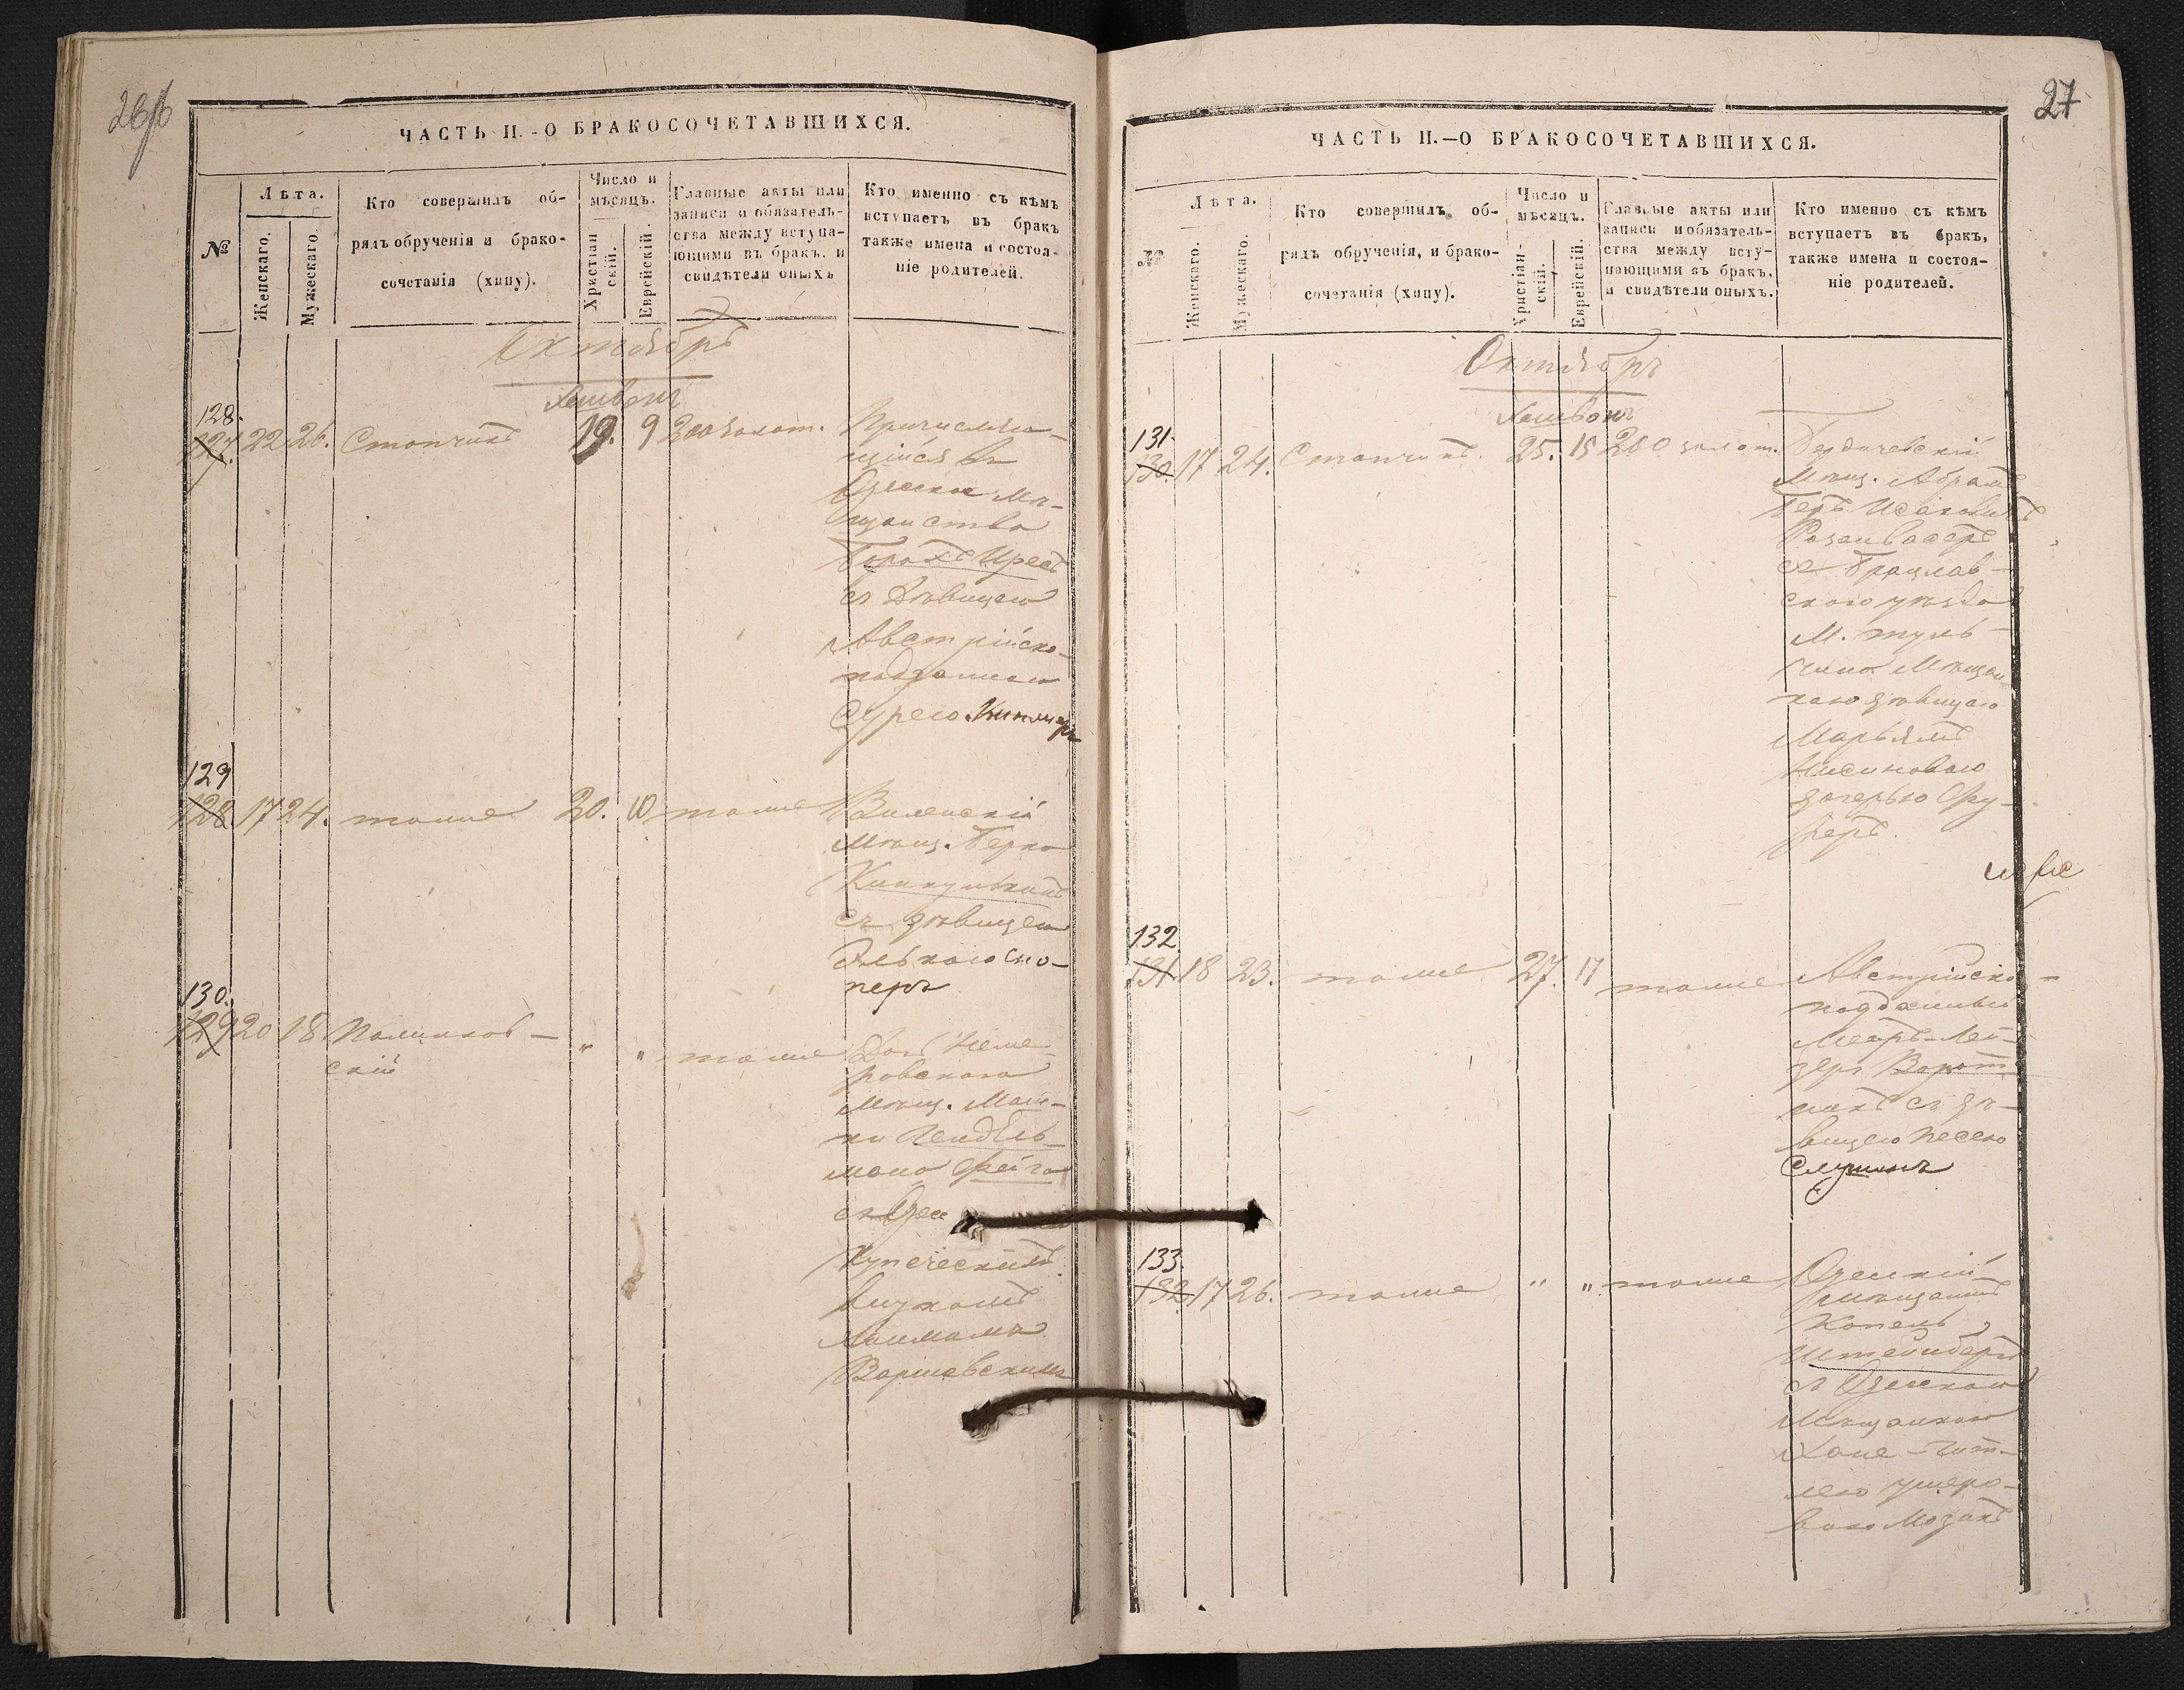 26об
ЧАСТЬ II.-О БРАКОСОЧЕТАВШИХСЯ.
№
Лѣта.
Женскаго.
Мужескаго.
Кто совершилъ об-
рядъ обрученія и брако-
сочетанія (хипу).
Число и
мѣсяцъ.
Христіан
скій.
Еврейскій.
Главные акты или
записи и обязатель-
ства между вступа-
ющими въ бракъ, и
свидѣтели оныхъ
Кто именно съ кѣмъ
вступаетъ въ бракъ
также имена и состоя-
ніе родителей.
Октябрь
Хешвонъ
128.
127. 22 26. Стопчикъ 19. 9 200 золот. Причисляю-
щійся въ
Одесское мѣ-
щанство
Борохъ Иресъ
съ Дѣвицею
Австрійско-
подданною
Сурею
129
128 17 24. тоже 20. 10 тоже Виленскій
мѣщ. Берко
съ дѣвицею
Элькою Сно-
перъ
130.
129 20 18. Полинков-
скій " " тоже Дочь Неме-
ровскаго
мѣщ. Мош-
ки Пендель-
мана Фейга
съ Одес
Купеческимъ
внукомъ
Хаимомъ
Варшавскимъ
27
ЧАСТЬ II.—О БРАКОСОЧЕТАВШИХСЯ.
№
Лѣта.
Женскаго.
Мужескаго.
Кто совершилъ об-
рядъ обрученія, и брако-
сочетанія (хипу).
Число и
мѣсяцъ.
Христіан-
скій.
Еврейскій.
Главные акты или
записи и обязатель-
ства между всту-
пающими въ бракъ,
и свидѣтели оныхъ.
Кто именно съ кѣмъ
вступаетъ въ бракъ,
также имена и состоя-
ніе родителей.
Октябрь
Хешвонъ
131.
130. 17 24. Стопчикъ. 25. 15 200 золот. Бердичевскій
Мѣщ. Абрамъ
Беръ Исаковичъ
Розенвасеръ
съ Брацлав-
скаго уѣзда
М. Туль-
чина Мѣщан
кою дѣвицею
Марьямъ
Нисиновою
дочерью Фу-
реръ.
132.
131 18 23. тоже 27. 17 тоже Австрійско-
подданный
Меиръ-Лей-
зеръ Ворот-
никъ съ дѣ-
вицею Песею
133.
132 17 26. тоже " " тоже Одесскій
мѣщанинъ
Копель
Штейнбергъ
съ Одесскою
Мѣщанкою
Хане-Гит-
лею Ушеро-
вою Мозакъ